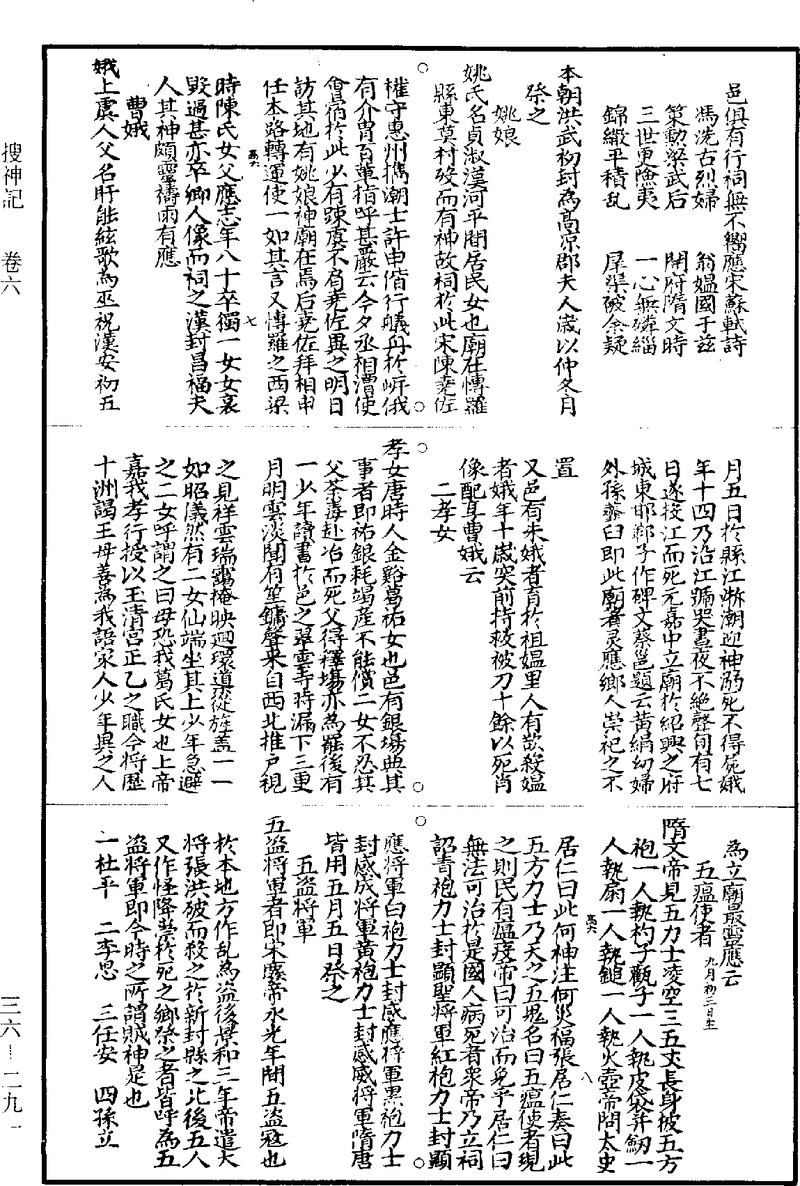 邑俱有行祠無不響應宋蘇軾詩
馮冼古烈婦 翁媼國于茲
策勳梁武后 開府隋文時
三世更險夷 一心無磷緇
錦繖平積亂 犀渠破余疑
本朝洪武初封為高凉郡夫人歲以仲冬月
祭之
姚娘
姚氏名貞淑漢河平間居民女也廟在博羅
縣東莫村歿而有神故祠於此宋陳堯佐
權守惠州携潮士許申偕行艤舟於岍俄
有介冑百輩指呼甚嚴云今夕丞相漕使
會宿於此少有踈虞不宥堯佐異之明日
訪其地有姚娘神廟在焉后堯佐拜相申
任本路轉運使一如其言又博羅之西梁
時陳氏女父應志年八十卒獨一女女哀
毀過甚亦卒鄉人像而祠之漢封昌福夫
人其神頗靈禱雨有應
曹娥
娥上虞人父名盱能絃歌為巫祝漢安初五
月五日於縣江泝潮迎神溺死不得屍娥
年十四乃沿江號哭晝夜不絕聲旬有七
日遂投江而死元嘉中立廟於紹興之府
城東邯鄲子作碑文蔡邕題云黃絹幼婦
外孫虀臼即此廟者灵應鄉人崇祀之不
置
又邑有朱娥者育於祖媼里人有欲殺媼
者娥年十歲突前持救被刀十餘以死肖
像配享曹娥云
二孝女
孝女唐時人金谿葛祐女也邑有銀場典其
事者即祐銀耗竭産不能償二女不忍其
父荼毒赴冶而死父得釋塲亦為罷後有
一少年讀書於邑之翠雲寺時漏下三更
月明雲淡聞有笙鏞聲来自西北推戶視
之見祥雲瑞靄掩映迴環導從旌蓋一一
如昭儀然有二女仙端坐其上少年急避
之二女呼謂之曰毋恐我葛氏女也上帝
嘉我孝行授以玉清宮正乙之職今将歷
十洲謁王母善為我語家人少年異之人
為立廟最霊應云
五瘟使者 九月初三日生
隋文帝見五力士凌空三五丈長身披五方
袍一人執杓子觀子一人執皮袋并劒一
人執扇一人執鎚一人執火壺帝問太史
居仁曰此何神注何災福張居仁奏曰此
五方力士乃天之五鬼名曰五瘟使者現
之則民有瘟疫帝曰可治而免乎居仁曰
無法可治於是國人病死者衆帝乃立祠
詔青袍力士封顯聖將軍紅袍力士封顯
應將軍白袍力士封感應將軍黑袍力士
封感成將軍黃袍力士封感威將軍隋唐
皆用五月五日祭之
五盜將軍
五盜將軍者即宋廢帝永光年間五盜寇也
於本地方作乱為盜後景和三年帝遣大
將張洪破而殺之於新封縣之北後五人
又作怪降祟於死之鄉祭之者皆呼為五
盜將軍即今時之所謂賊神是也
一杜平 二李思 三任安 四孫立
搜神記 卷六
三六-二九一
七
八